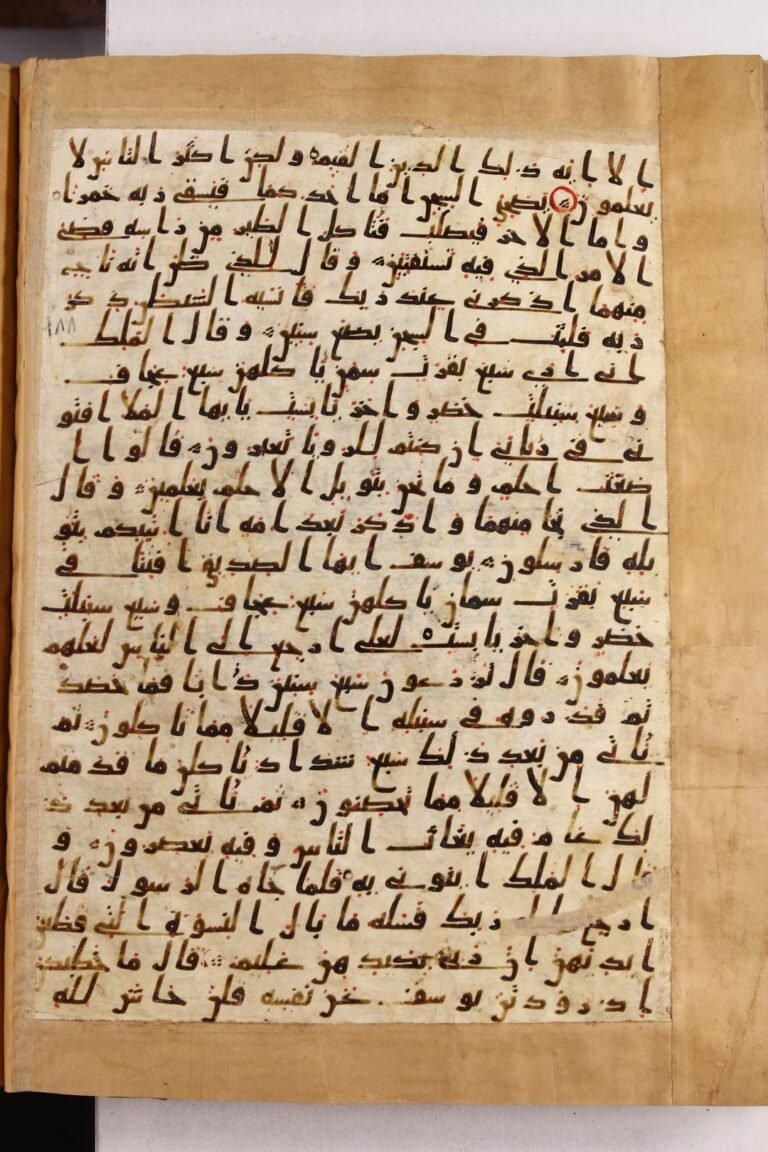 الا اياه ذلك الدين القيم ولكن اكثر الناس لا
يعلمون يصحبي السجن اما احدكما فيسقي ربه خمرا
واما الاخر فيصلب فتاكل الطير من راسه قضي
الامر الذي فيه تستفتين وقال للذي ظن انه ناج
منهما اذكرني عند ربك فانسيه الشيطن ذكر
ربه فلبث في السجن بضع سنين وقال الملك
اني اري سبع بقرت سمن ياكلهن سبع عجاف
وسبع سنبلت خضر واخر يابست يايها الملا افتو
ني في رياي ان كنتم للريا تعبرون قالوا ا
ضغث احلم وما نحن بتويل الاحلم بعلمين وقال
الذي نجا منهما وادكر بعد امه انا انبيكم بتو
يله فارسلون يوسف ايها الصديق افتنا في
سبع بقرت سمان ياكلهن سبع عجاف وسبع سنبلت
خضر واخر يابست لعلي ارجع الي الناس لعلهم
يعلمون قال تزرعون سبع سنين دابا فما حصد
تم فذروه في سنبله الا قليلا مما تاكلون ثم
ياتي من بعد ذلك سبع شداد ياكلن ما قدمتم
لهن الا قليلا مما تحصنون ثم ياتي من بعد ذ
لك عام فيه يغاث الناس وفيه يعصرون و
قال الملك ايتوني به فلما جاه الرسول قال
ارجع الي ربك فسله ما بال النسوة التي قطعن
ايديهن ان ربي بكيدهن عليم قال ما خطبكن
اذ رودتن يوسف عن نفسه قلن حاش لله